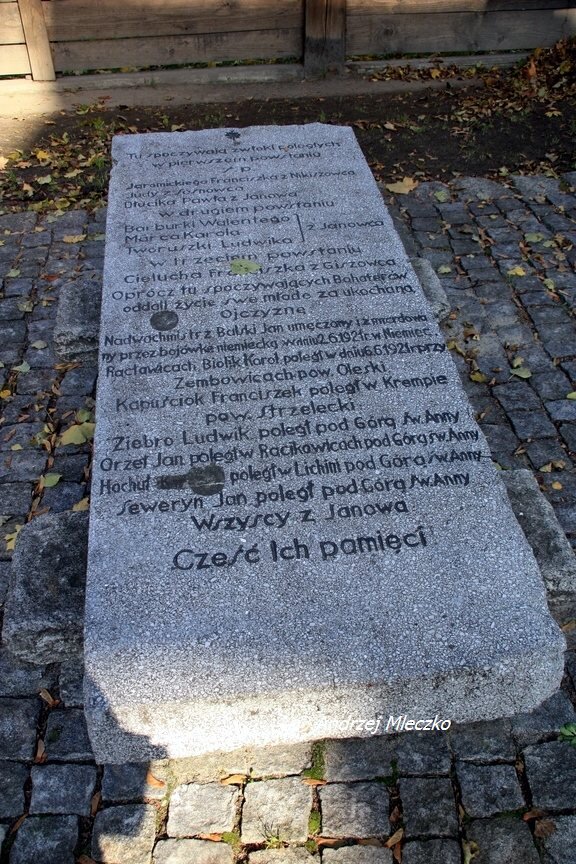 Tu spoczywają zwłoki poległych
w pierwszem powstaniu
ś. p.
Jaromickiego Franciszka z Nikiszowca
z Janowa
w drugiem powstaniu
Barburki Walentego
Marca Karola
Twaruszki Ludwika
z Janowca
w trzeciem powstaniu
Cielucha z Giszowca
Oprócz tu spoczywających Bohaterów
oddali życie swe młode za ukochaną
Ojczyznę
Nadwachmistrz Balski Jan umęczony i zmordowa
ny przez bojówkę niemiecką w dniu 2.6.1921 r. w Niemiec.
Racławicach, Biolik Karol poległ w dniu 6.6.1921 r. przy
Zembowicach pow. Oleski.
Kapuściok Franciszek poległ w Krempie
pow. Strzelecki
Ziebro Ludwik poległ pod Górą św. Anny
Orzeł Jan poległ w Racikawicach pod Górą św. Anny
poległ w Lichini pod Górą św. Anny
Seweryn Jan poległ pod Górą św. Anny
Wszyscy z Janowa
Cześć Ich pamięci
Andrzej Mleczko